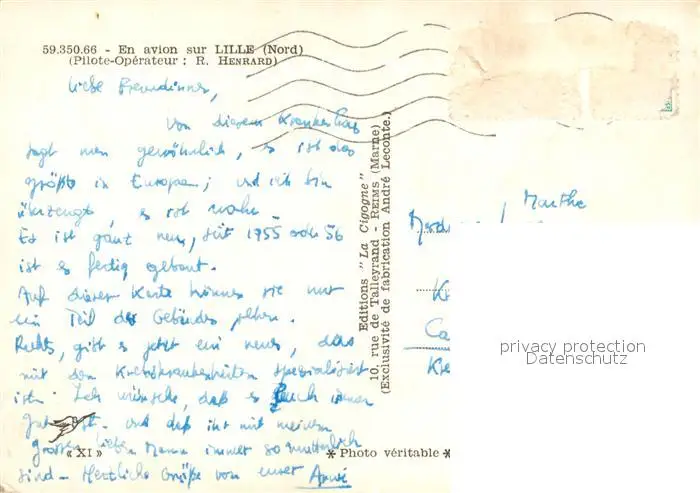 59.350.66 - En avion sur LILLE (Nord)
(Pilote-Opérateur : R. HENRARD)
Liebe Freundinnen,
Von diesem Krankenhaus
sagt man gewöhnlich, es ist das
größte in Europa; und ich bin
überzeugt, es ist wahr.
Es ist ganz neu, seit 1955 oder 56
ist es fertig gebaut.
Auf dieser Karte können sie nur
ein Teil des Gebäudes sehen.
Rechts, gibt es jetzt ein neues, das
mit den Krebskrankheiten spezialisiert
ist. Ich wünsche, daß es Euch immer
gut ist. und daß ihr mit meinem
großen liebe Mama immer so mütterlich
sind - Herzliche Grüße von eurer
« XI »
* Photo véritable *
Editions "La Cigogne"
10, rue de Talleyrand - REIMS (Marne)
(Exclusivité de fabrication André Leconte.)
Marthe
privacy protection
Datenschutz